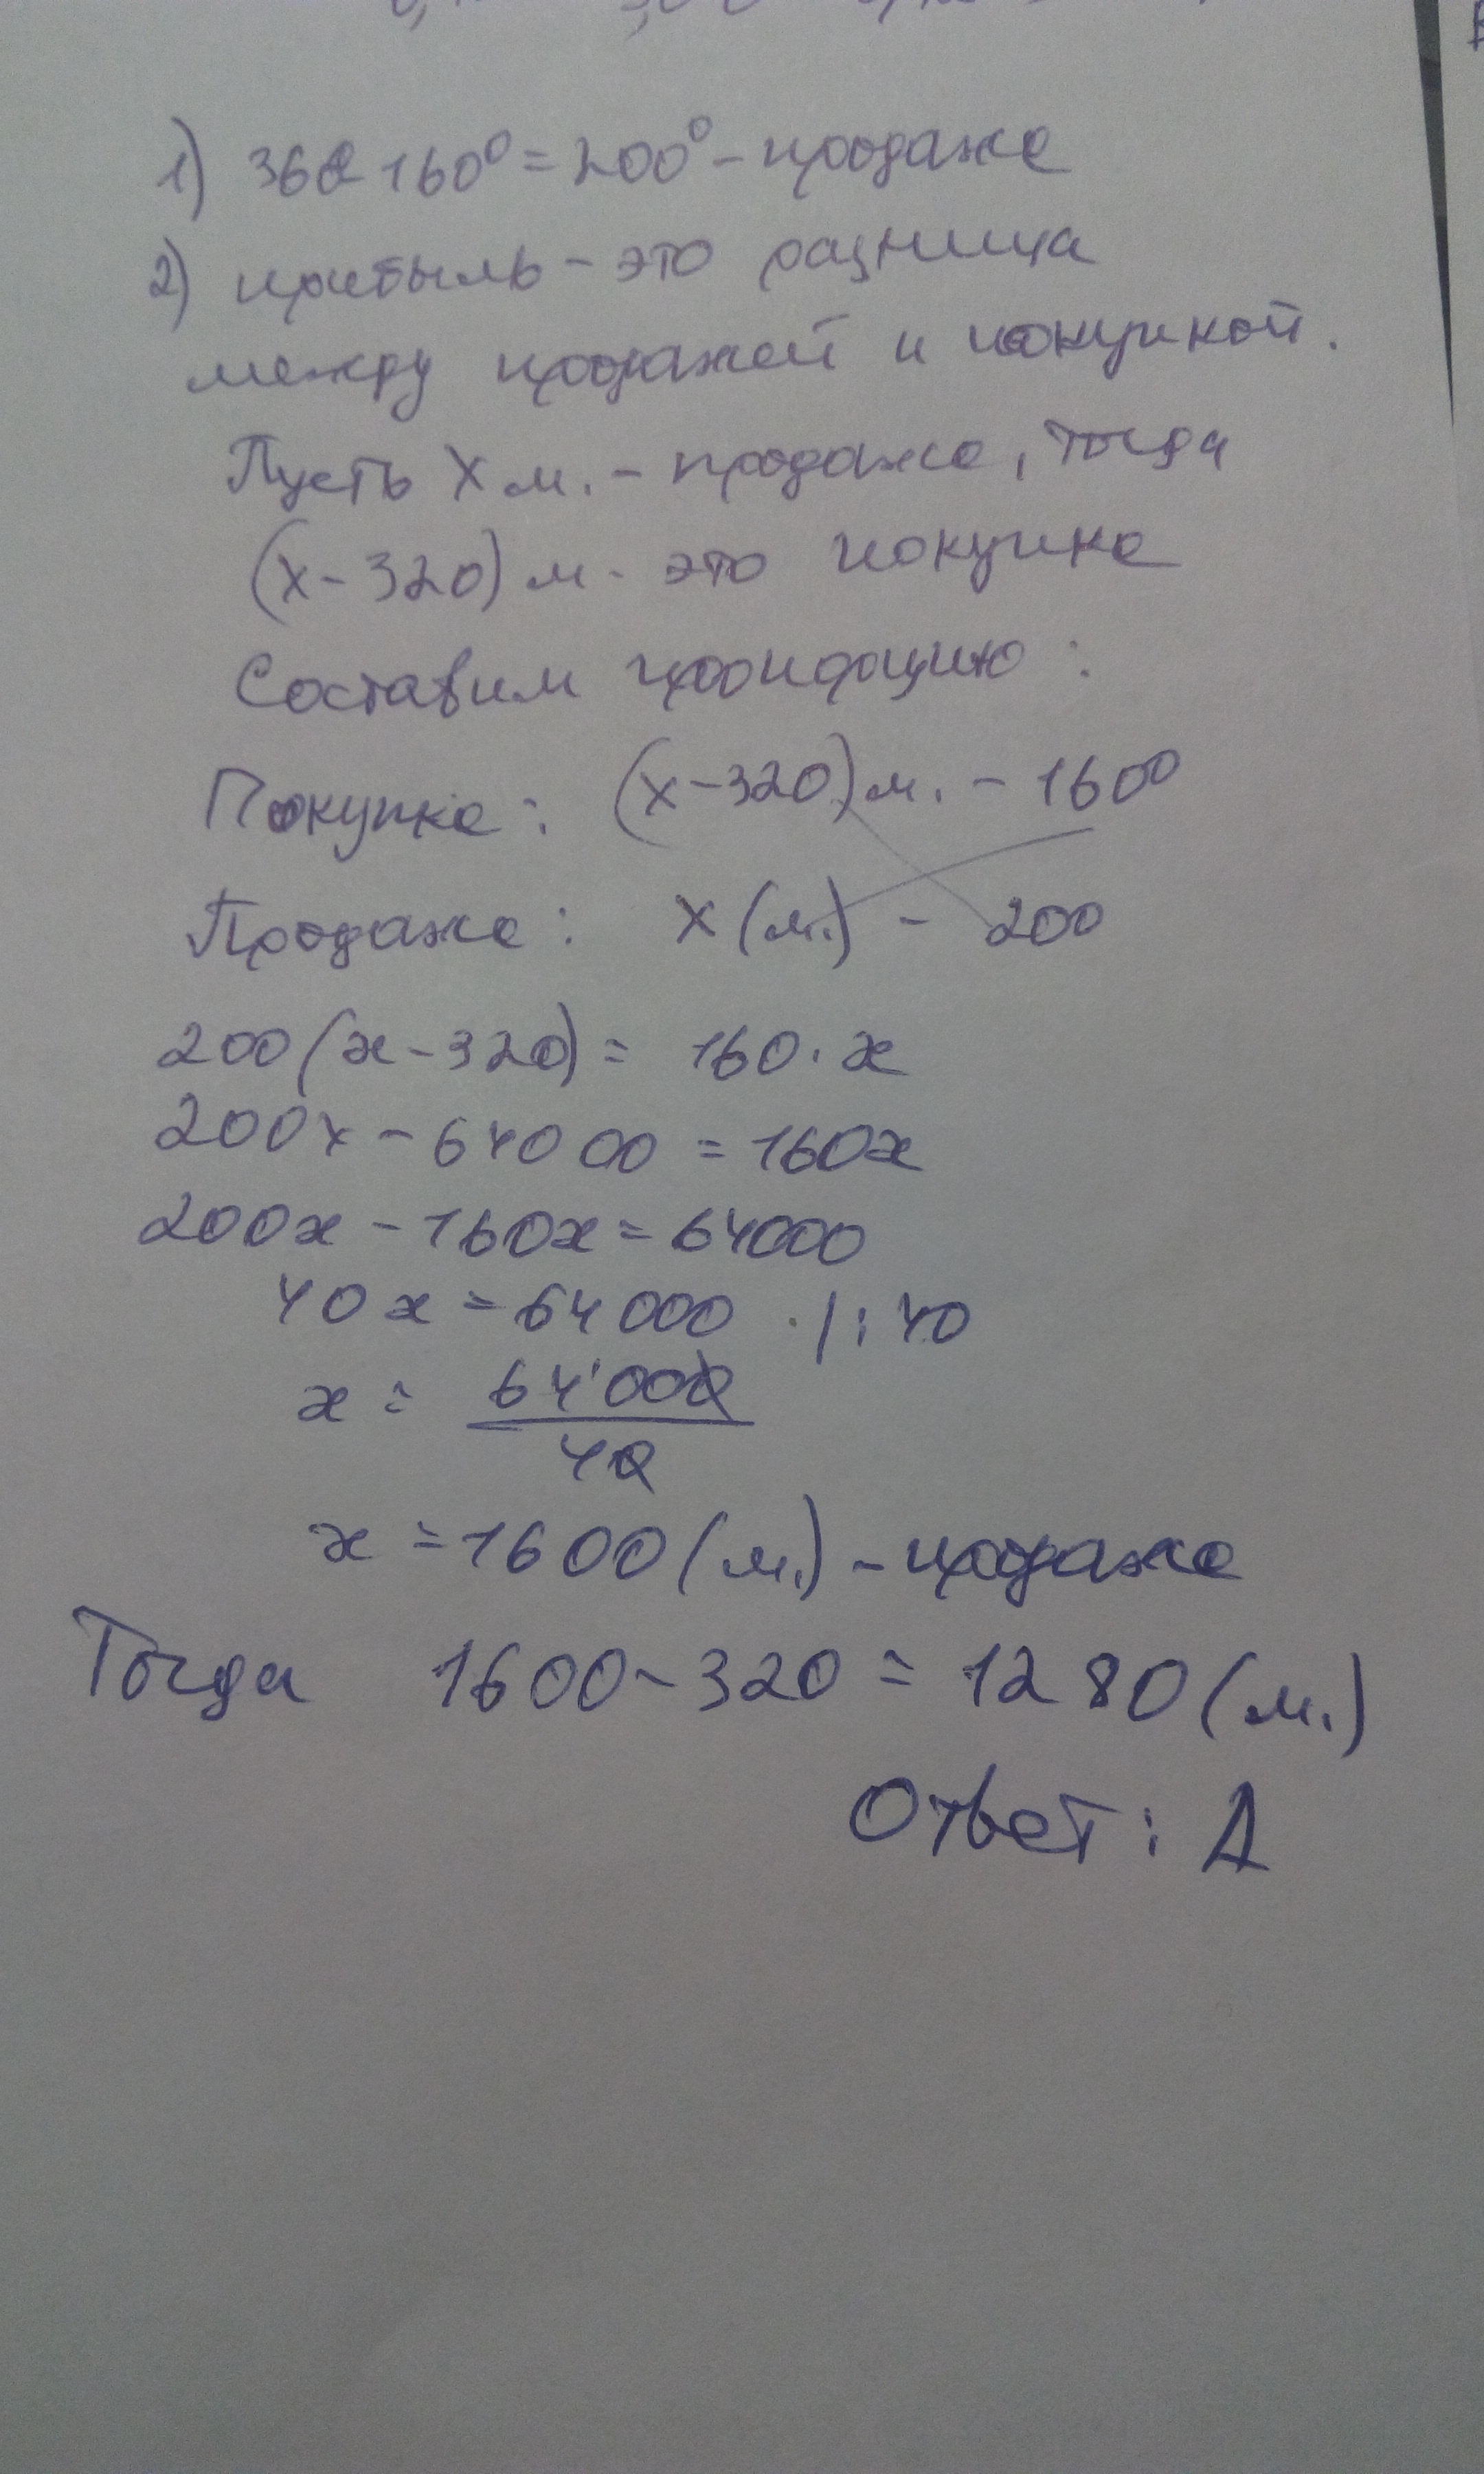 1) 360 160° = 200° - продажа
2) прибыль - это разница
между продажей и покупкой.
Пусть x м. - продажа, тогда
(x - 320) м - это покупка
Составим пропорцию:
Покупка: (x - 320) м. - 160°
Продажа: x (м.) - 200
200 (x - 320) = 160 · x
200x - 64000 = 160x
200x - 160x = 64000
40x = 64000 /: 40
x = 64'000
40
x = 1600 (м.) - продажа
Тогда 1600 - 320 = 1280 (м.)
Ответ: А